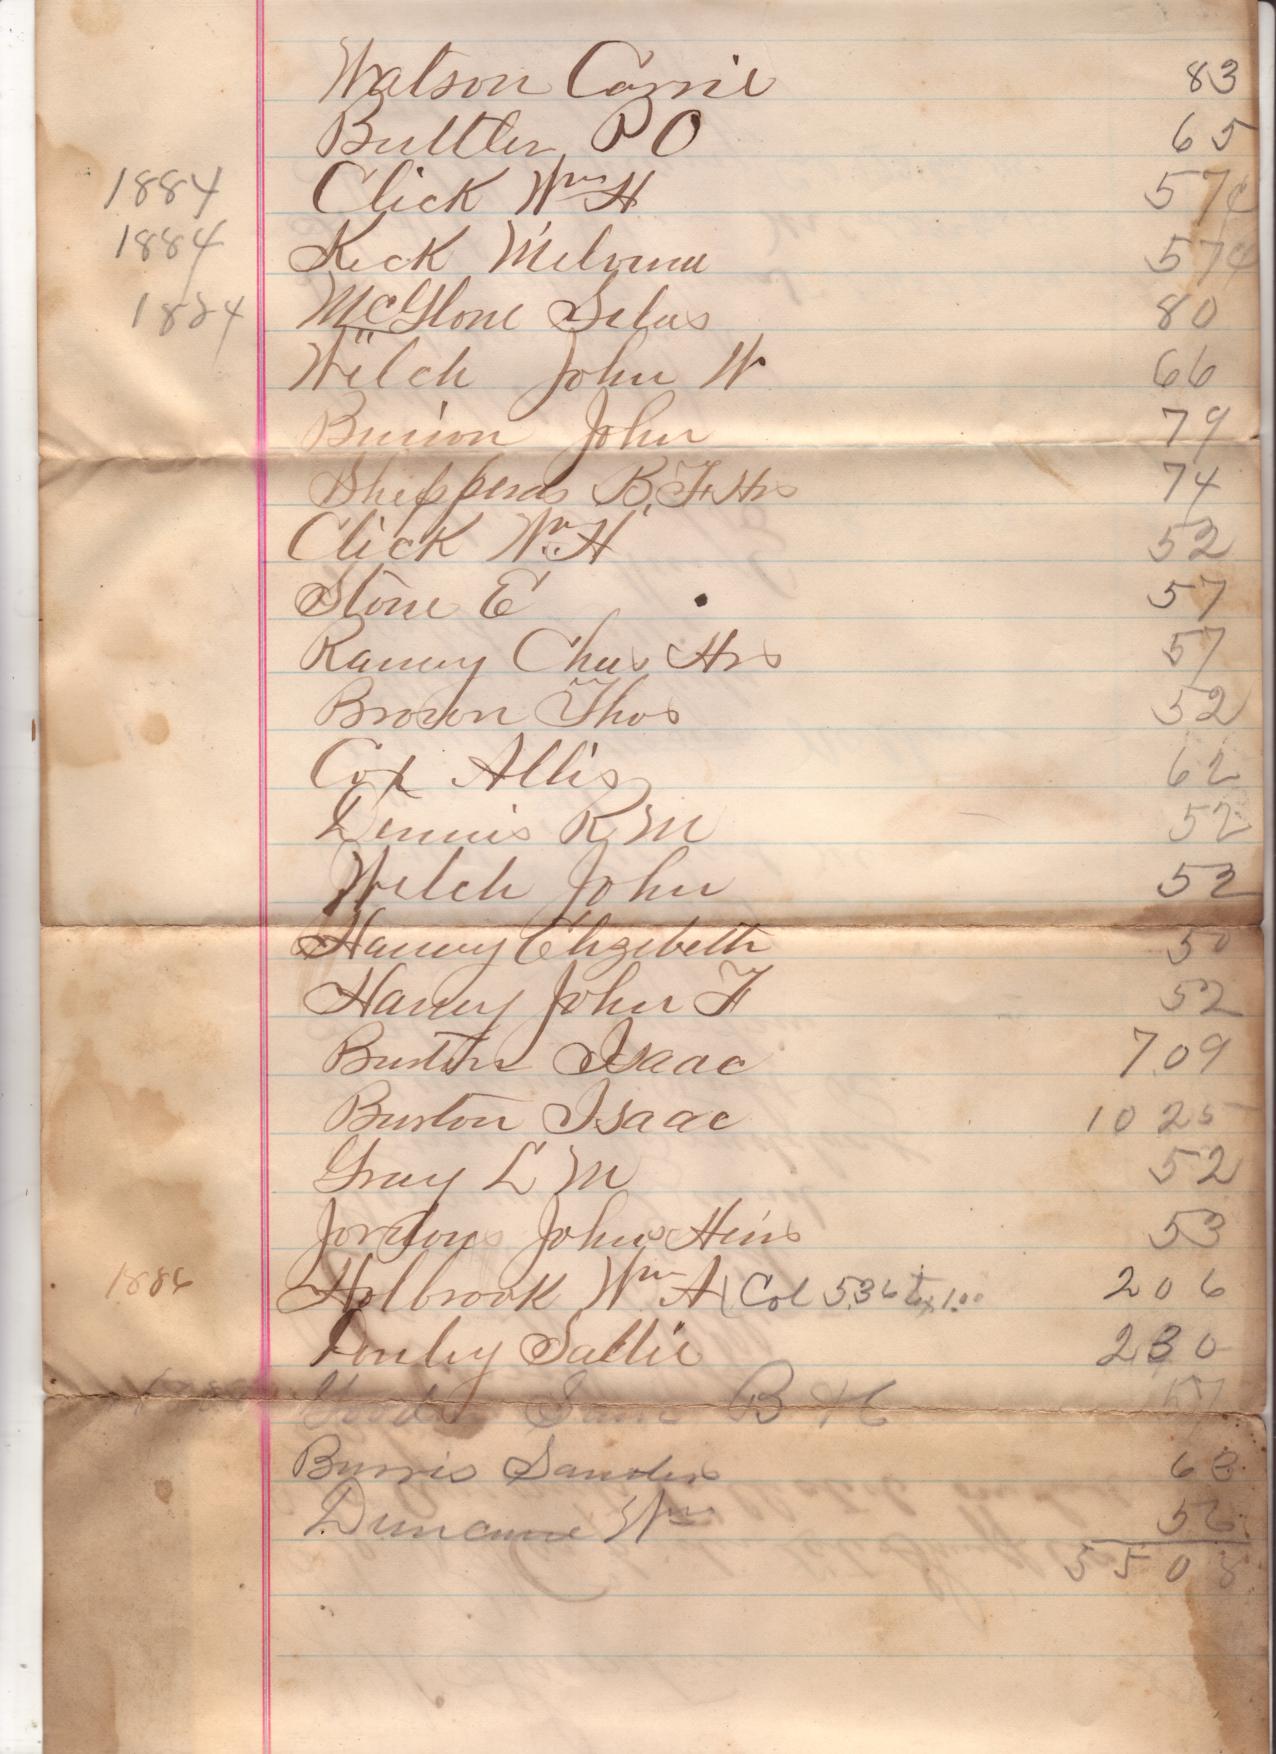 Watson Carrie 83
Buttler P O 65
1884 Click Wm H 57¢
1884 Keck Melvina 57¢
1884 McGlone Silas 80
Welch John W 66
Burion John 79
Shepperds B. F. Hrs 74
Click Wm H 52
Stone E 57
Ramey Chas Hrs 57
Brown Thos 52
Cox Allis 62
Dennis R M 52
Welch John 52
Haney Elizibeth 50
Haney John F 52
Burton Isaac 7 09
Burton Isaac 10 25
Gray L M 52
Jordons John Heirs 53
1886 Holbrook Wm A (Col 5.36 1.00 2 06
Sallie 2 30
B H 57
Burris Sanders 63
Wm 56
55 08